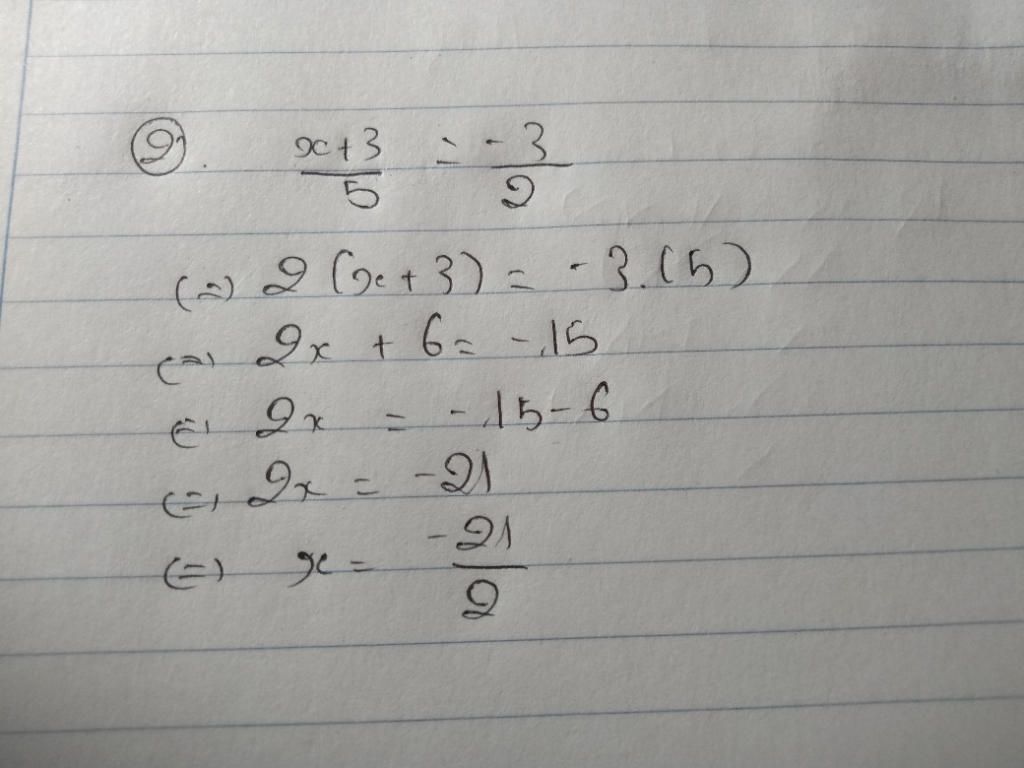 ②. x+3/5 = -3/2
(=) 2(x+3) = -3.(5)
(=) 2x + 6 = -15
(=) 2x = -15-6
(=) 2x = -21
(=) x = -21/2